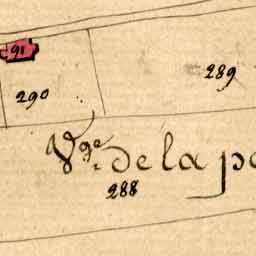 91
289
290
Vge. de la pe
288